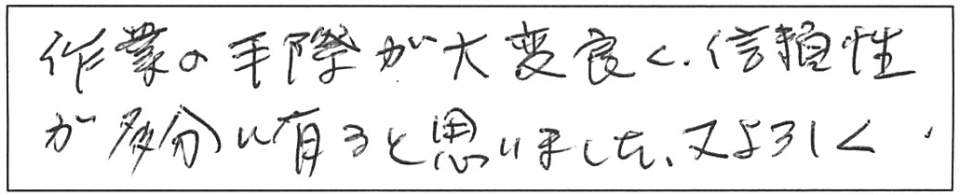 作業の手際が大変良く、信頼性
が多分に有ると思いました、又よろしく